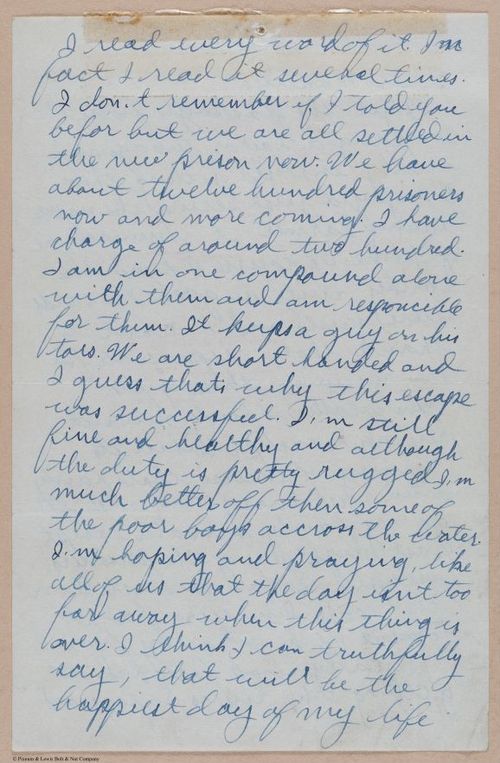 I read every word of it. Im
fact I read it several times.
I don.t remember if I told you
befor but we are all settled in
the new prison now. We have
about twelve hundred prisoners
now and more coming. I have
charge of around two hundred.
I am in one compound alone
with them and am responcible
for them. It keeps a guy on his
toes. We are short handed and
I guess thats why this escape
was successful. I,m still
fine and healthy and although
the duty is pretty rugged I,m
much better off then some of
the poor boys accross the water.
I.m hoping and praying, like
all of us that the day isn't too
far away when this thing is
over. I think I can truthfully
say, that will be the
happiest day of my life.
© Pittman & Lewis Bolt & Nut Company